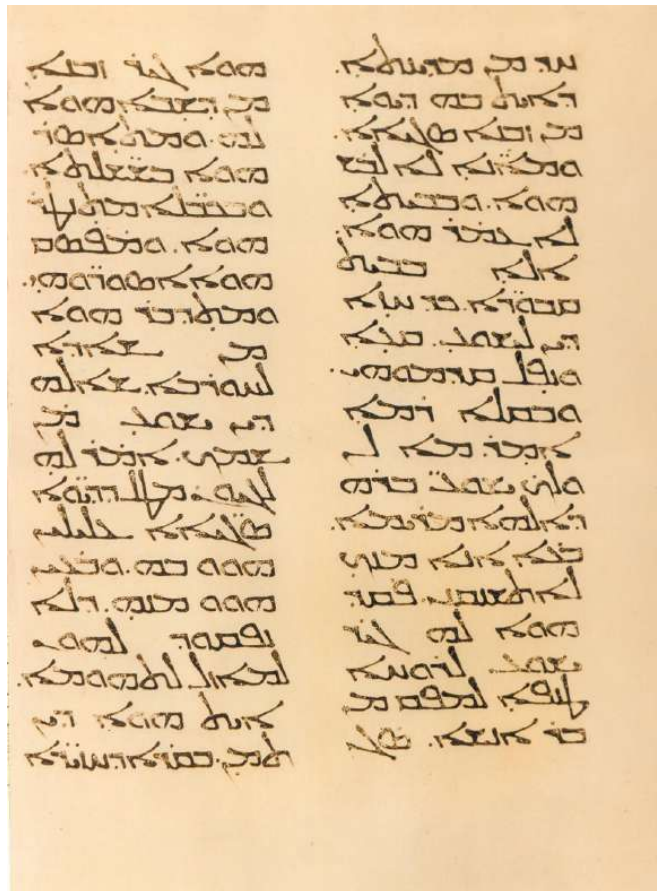 ܚܕ ܡܢ ܡܕܝܢܬܐ.
ܕܐܝܬ ܒܗ ܕܝܘܐ
ܡܢ ܙܒܢܐ ܣܓܝܐܐ.
ܘܡܐܢ̈ܐ ܠܐ ܠܒܫ
ܗܘܐ. ܘܒܒܝܬܐ
ܠܐ ܥܡܪ ܗܘܐ.
ܐܠܐ ܒܒܝܬ
ܩܒܘܪ̈ܐ. ܟܕ ܚܙܐ
ܕܝܢ ܠܝܫܘܥ. ܩܥܐ
ܘܢܦܠ ܩܕܡܘܗܝ.
ܘܒܩܠܐ ܪܡܐ
ܐܡܪ. ܡܐ ܠܢ
ܘܠܟ ܝܫܘܥ ܒܪܗ
ܕܐܠܗܐ ܡܪܝܡܐ.
ܒܥܐ ܐܢܐ ܡܢܟ
ܠܐ ܬܫܢܩܢܝ. ܦܩܕ
ܗܘܐ ܠܗ ܓܝܪ
ܝܫܘܥ ܠܪܘܚܐ
ܛܢܦܐ ܠܡܦܩ ܡܢ
ܒܪ ܐܢܫܐ. ܣܓܝ
ܗܘܐ ܓܝܪ ܙܒܢܐ
ܡܢ ܕܫܒܐ ܗܘܐ
ܠܗ. ܘܡܬܐܣܪ
ܗܘܐ ܒܫܫ̈ܠܬܐ
ܘܒܟܒ̈ܠܐ ܡܬܢܛܪ
ܗܘܐ. ܘܡܦܣܩ
ܗܘܐ ܐܣܘܪ̈ܘܗܝ.
ܘܡܬܕܒܪ ܗܘܐ
ܡܢ ܫܐܕܐ
ܠܚܘܪܒܐ. ܫܐܠܗ
ܕܝܢ ܝܫܘܥ ܡܢ
ܫܡܟ. ܐܡܪ ܠܗ
ܠܓܝܘܢ. ܡܛܠ ܕܕܝ̈ܘܐ
ܣܓܝ̈ܐܐ ܥܠܝܠܝܢ
ܗܘܘ ܒܗ. ܘܒܥܝܢ
ܗܘܘ ܡܢܗ. ܕܠܐ
ܢܦܩܘܕ ܠܗܘܢ
ܠܡܐܙܠ ܠܬܗܘܡܐ.
ܐܝܬ ܗܘܐ ܕܝܢ
ܬܡܢ. ܒܩܪܐ ܕܚܙܝܪ̈ܐ